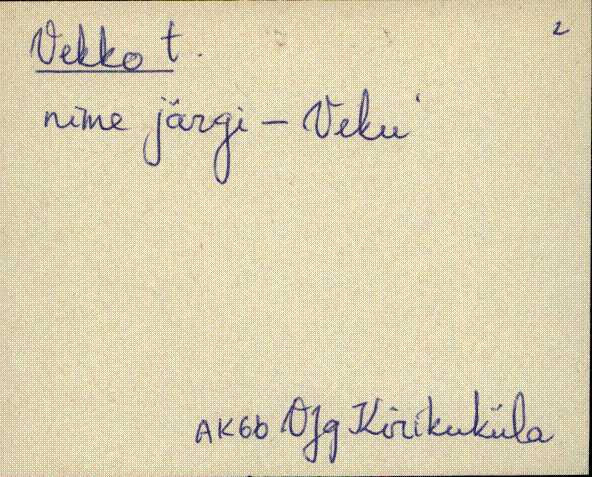 2
Vekko t.
nime järgi – Veku'
AK60 VJg Kirikuküla